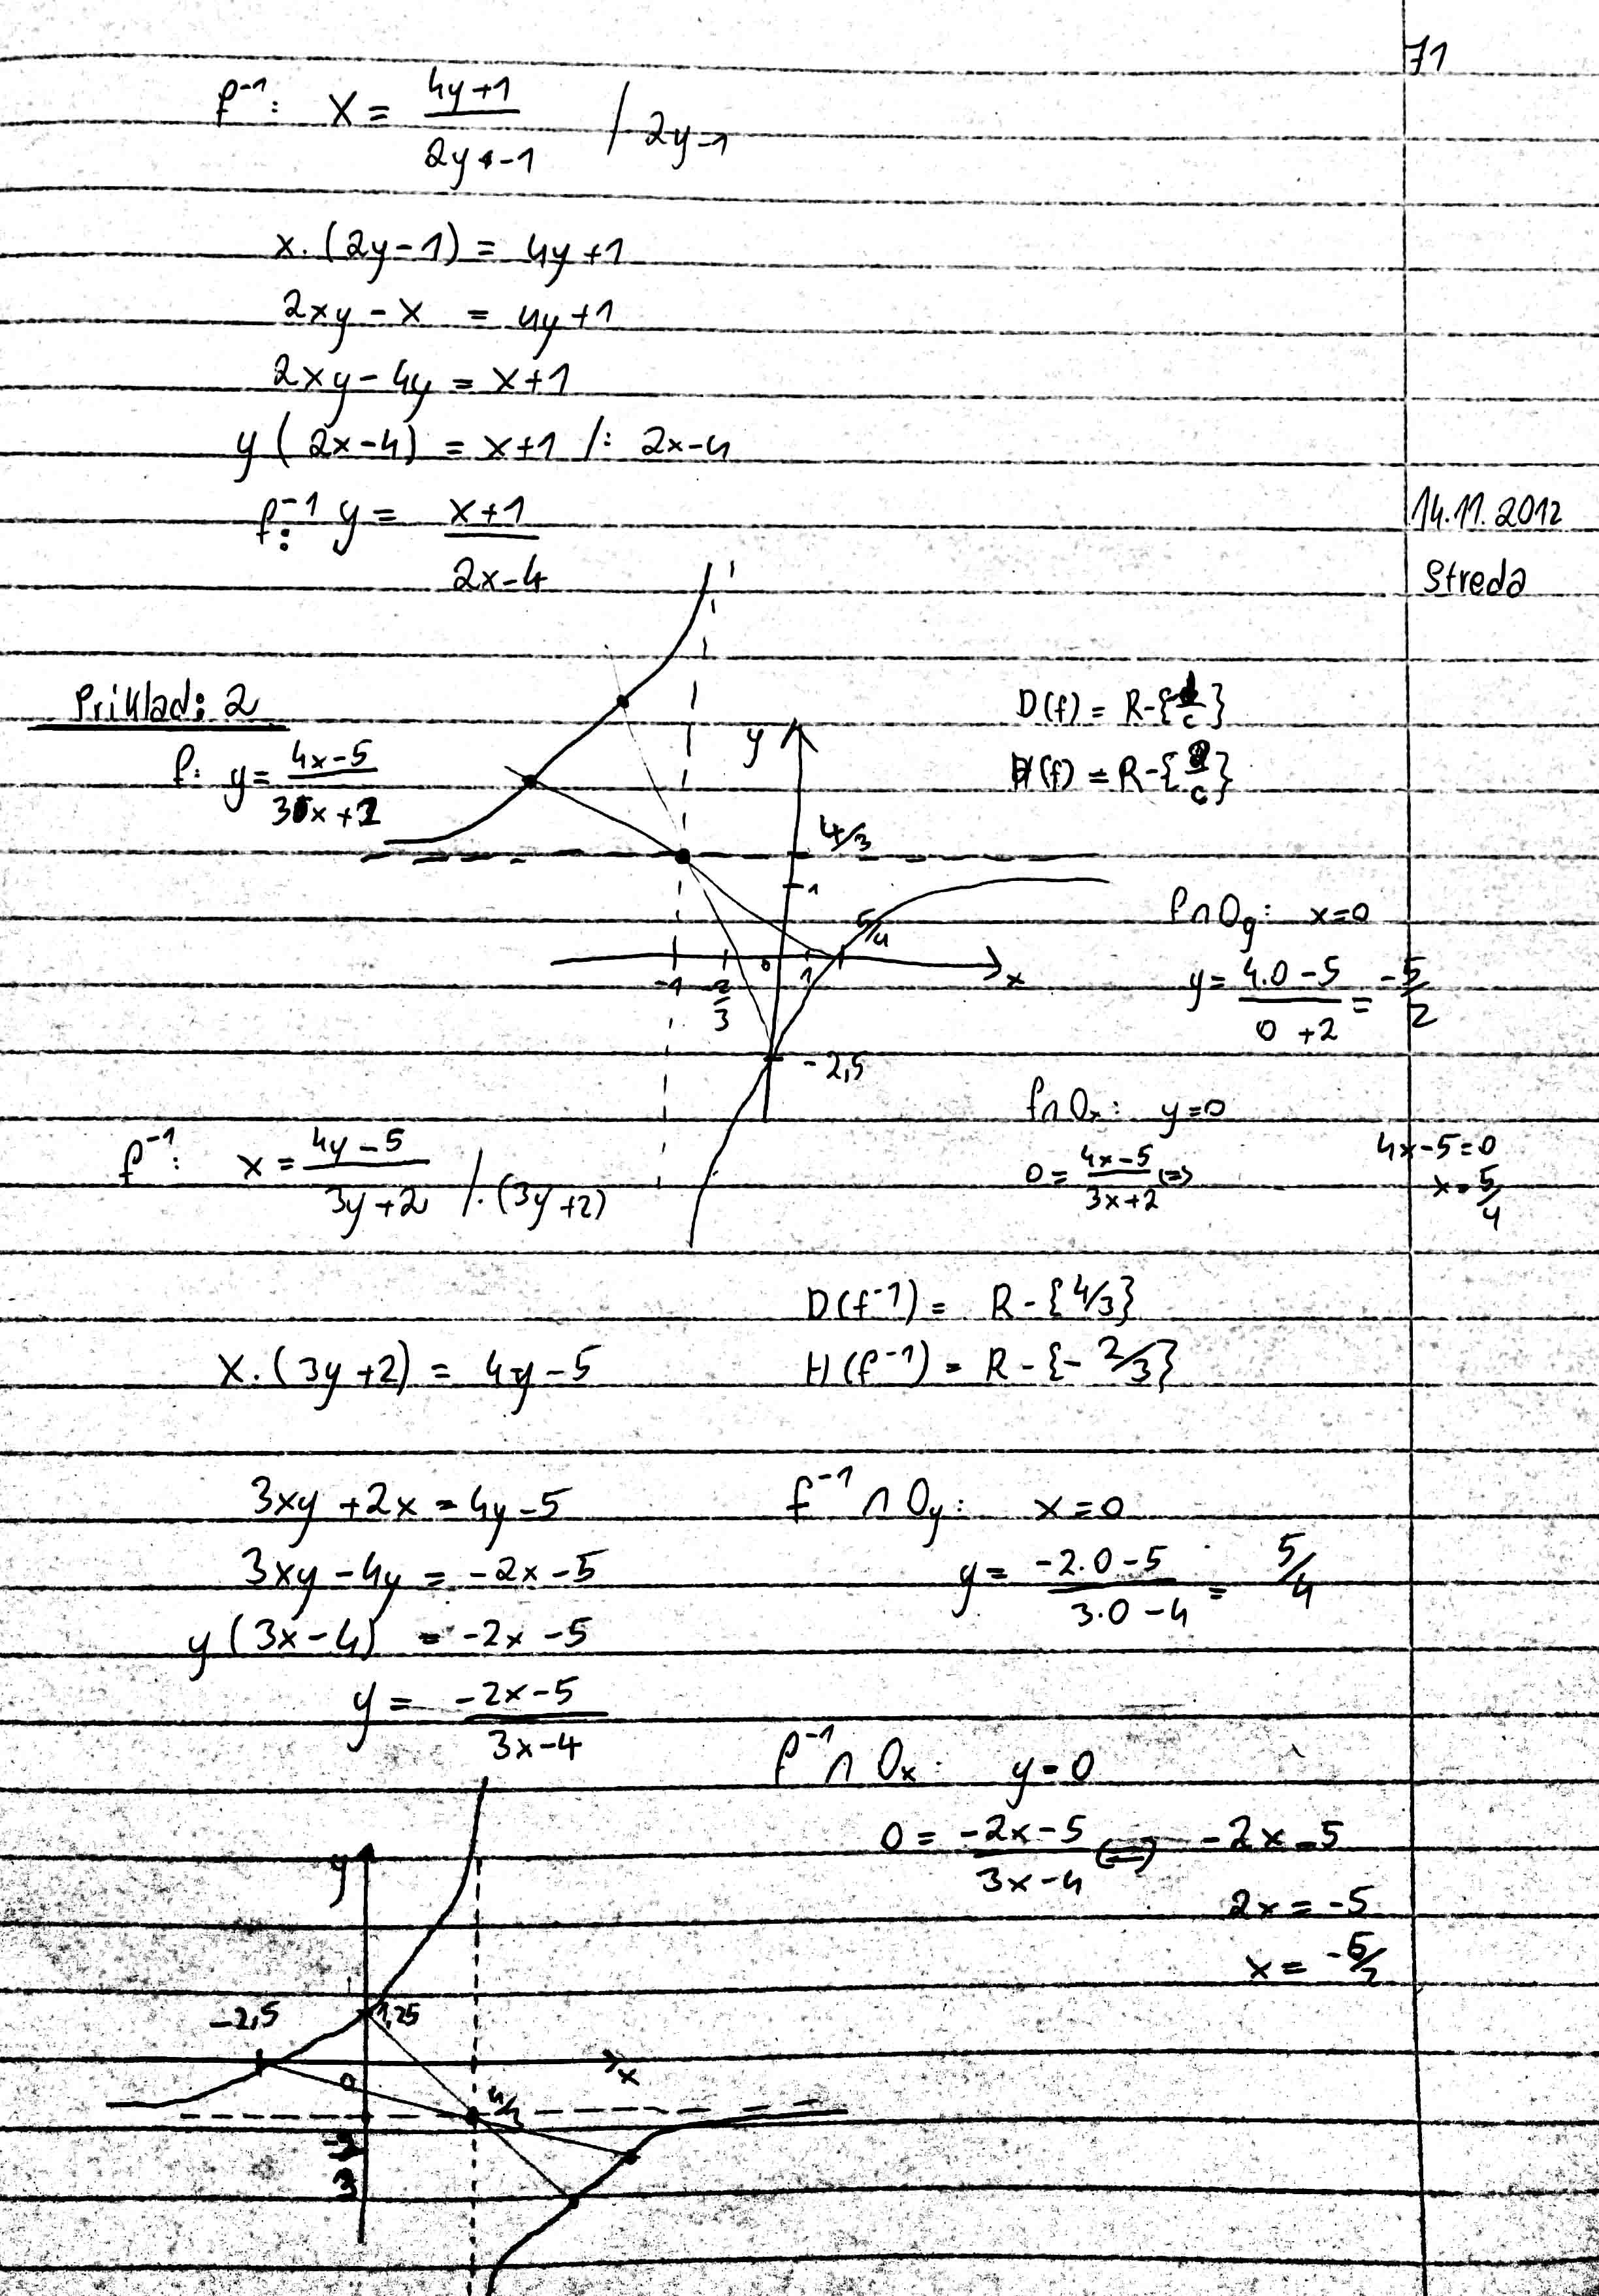 71
f⁻¹: x = (4y+1)/(2y-1) / 2y-1
x.(2y-1) = 4y+1
2xy - x = 4y+1
2xy - 4y = x+1
y(2x-4) = x+1 /: 2x-4
f⁻¹: y = (x+1)/(2x-4)
14.11.2012
Streda
Príklad: 2
f: y = (4x-5)/(3x+2)
D(f) = R-{d/c}
H(f) = R-{a/c}
y
4/3
1
5/4
-1 2/3 0 1 x
-2,5
f∩Oy: x=0
y = (4.0-5)/(0+2) = -5/2
f∩Ox: y=0
0 = (4x-5)/(3x+2) <=> 4x-5=0
x = 5/4
f⁻¹: x = (4y-5)/(3y+2) /.(3y+2)
D(f⁻¹) = R-{4/3}
x.(3y+2) = 4y-5
H(f⁻¹) = R-{-2/3}
3xy+2x = 4y-5
3xy-4y = -2x-5
y(3x-4) = -2x-5
y = (-2x-5)/(3x-4)
f⁻¹∩Oy: x=0
y = (-2.0-5)/(3.0-4) = 5/4
f⁻¹∩Ox: y=0
0 = (-2x-5)/(3x-4) <=> -2x=5
2x = -5
x = -5/2
y
-2,5 1,25
0 x
4/3
-2/3